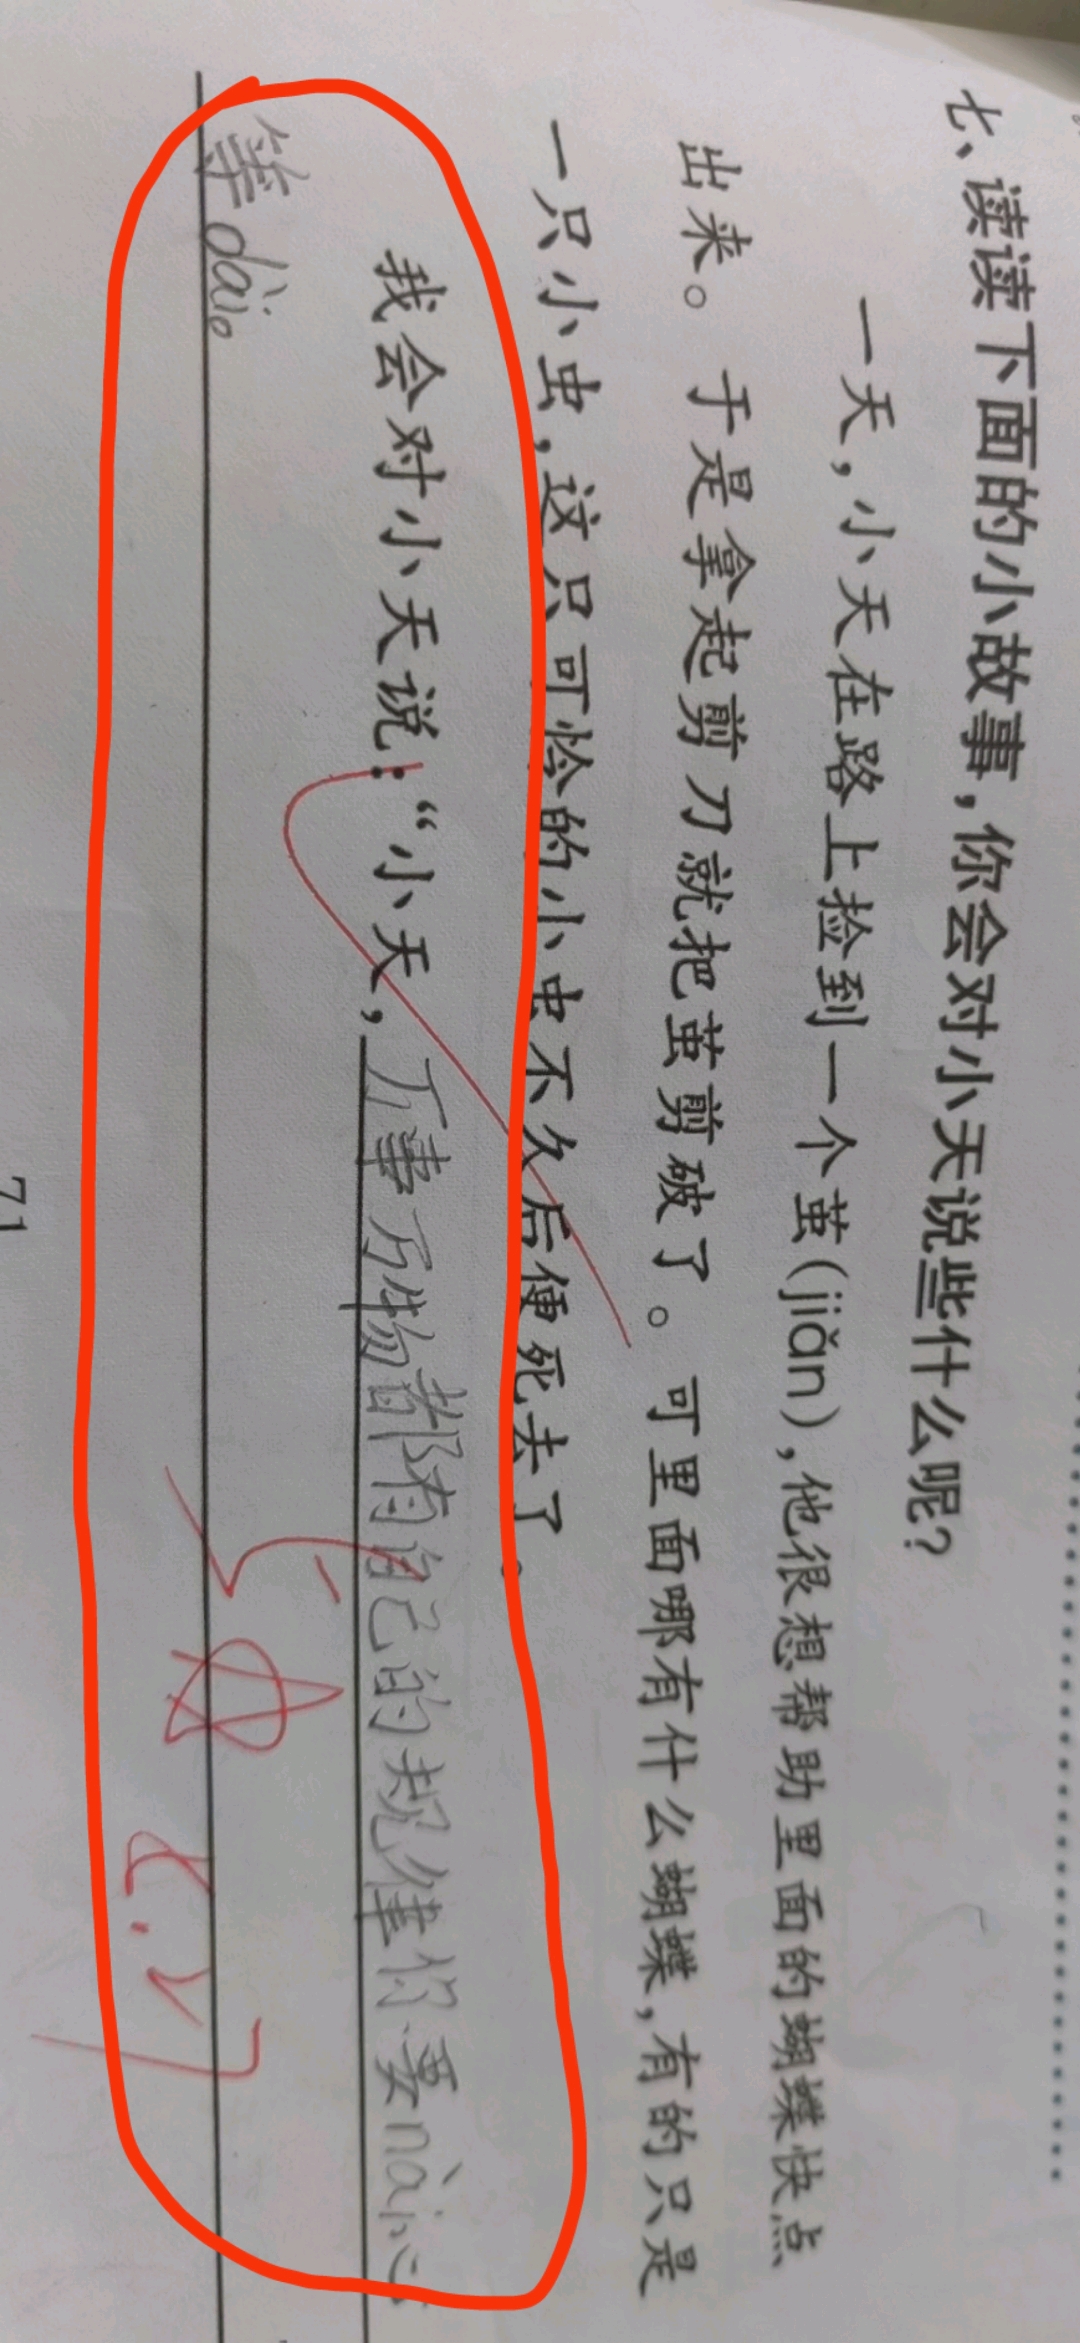 七、读读下面的小故事，你会对小天说些什么呢？
一天，小天在路上捡到一个茧（jiǎn），他很想帮助里面的蝴蝶快点
出来。于是拿起剪刀就把茧剪破了。可里面哪有什么蝴蝶，有的只是
一只小虫，这只可怜的小虫不久后便死去了。
我会对小天说：“小天，万事万物都有自己的规律你要nài心
等dài。
71